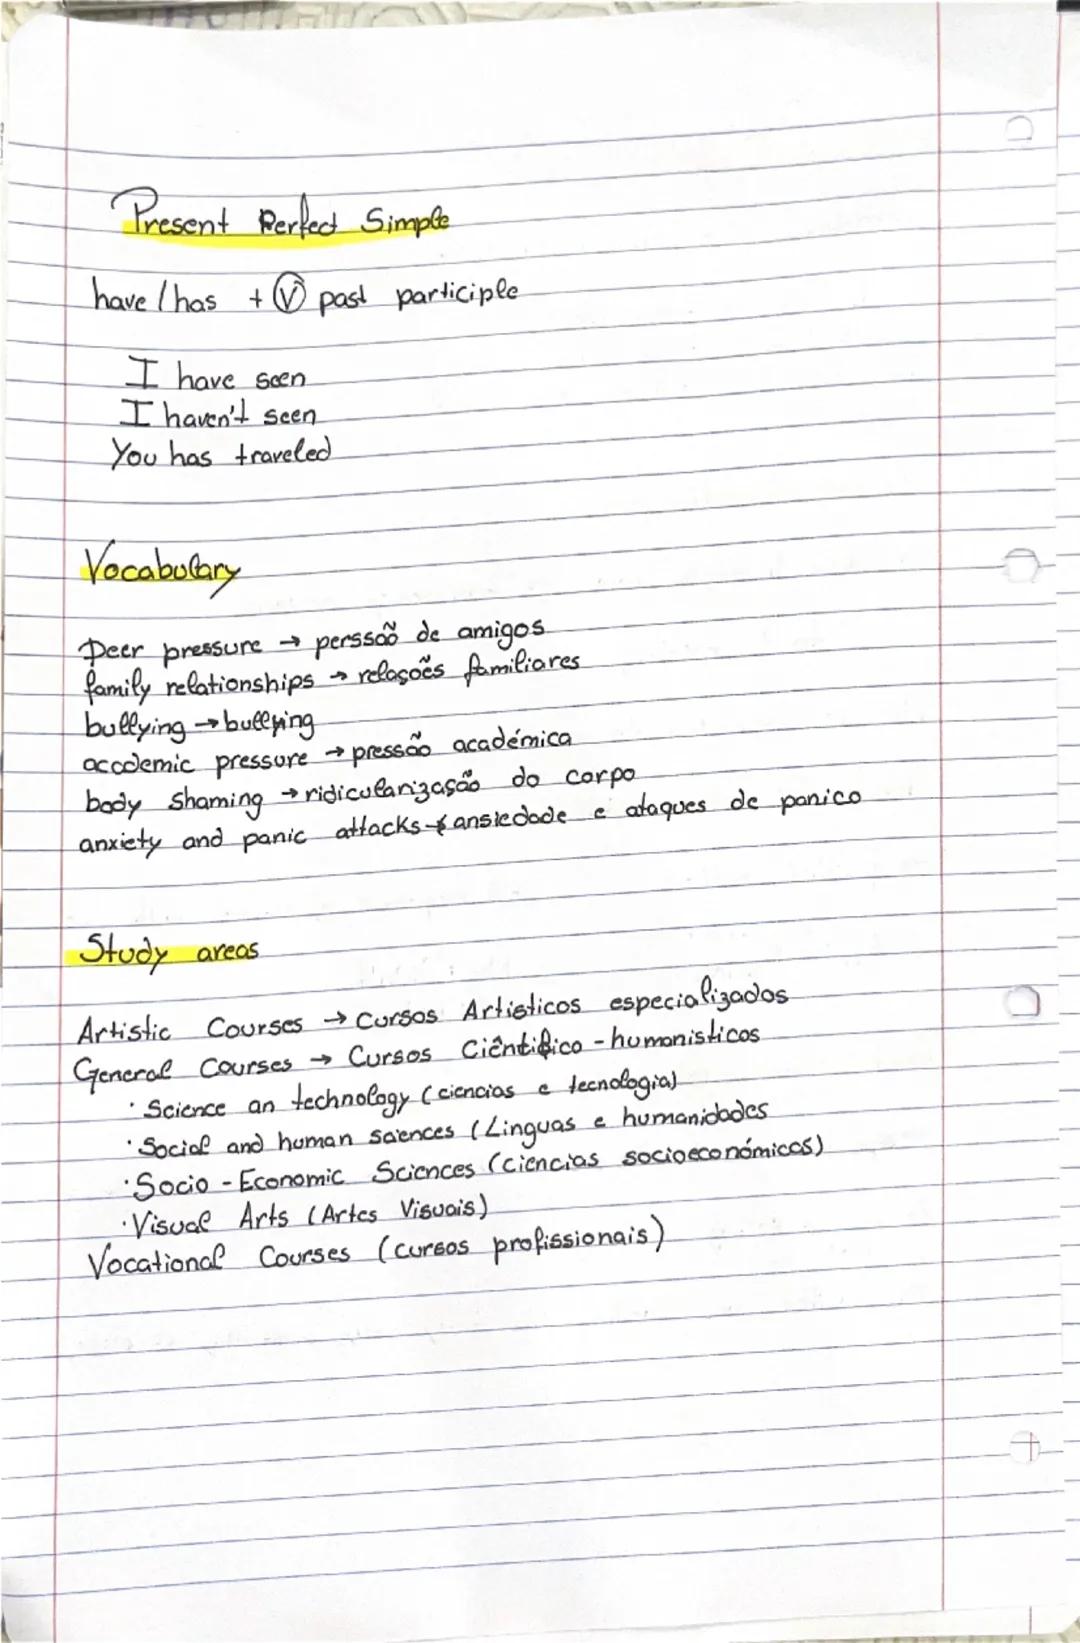 Present Perfect Simple
have / has + V past participle
I have seen
I haven't seen
You has traveled
Vocabulary
Peer pressure → perssaõ de amigos
family relationships → relaçoẽs familiares
bullying → bullying
accdemic pressure → pressaõ académica
body shaming → ridicularizaçaõ do corpo
anxiety and panic attacks → ansiedade e ataques de panico
Study areas
Artistic Courses → Cursos Artisticos especializados
General Courses → Cursos Ciêntifico - humanisticos
· Science an technology (ciencias e tecnologia)
· Social and human sciences (Linguas e humanidades
· Socio - Economic Sciences (ciencias socioeconómicas)
· Visual Arts (Artes Visuais)
Vocational Courses (cursos profissionais)